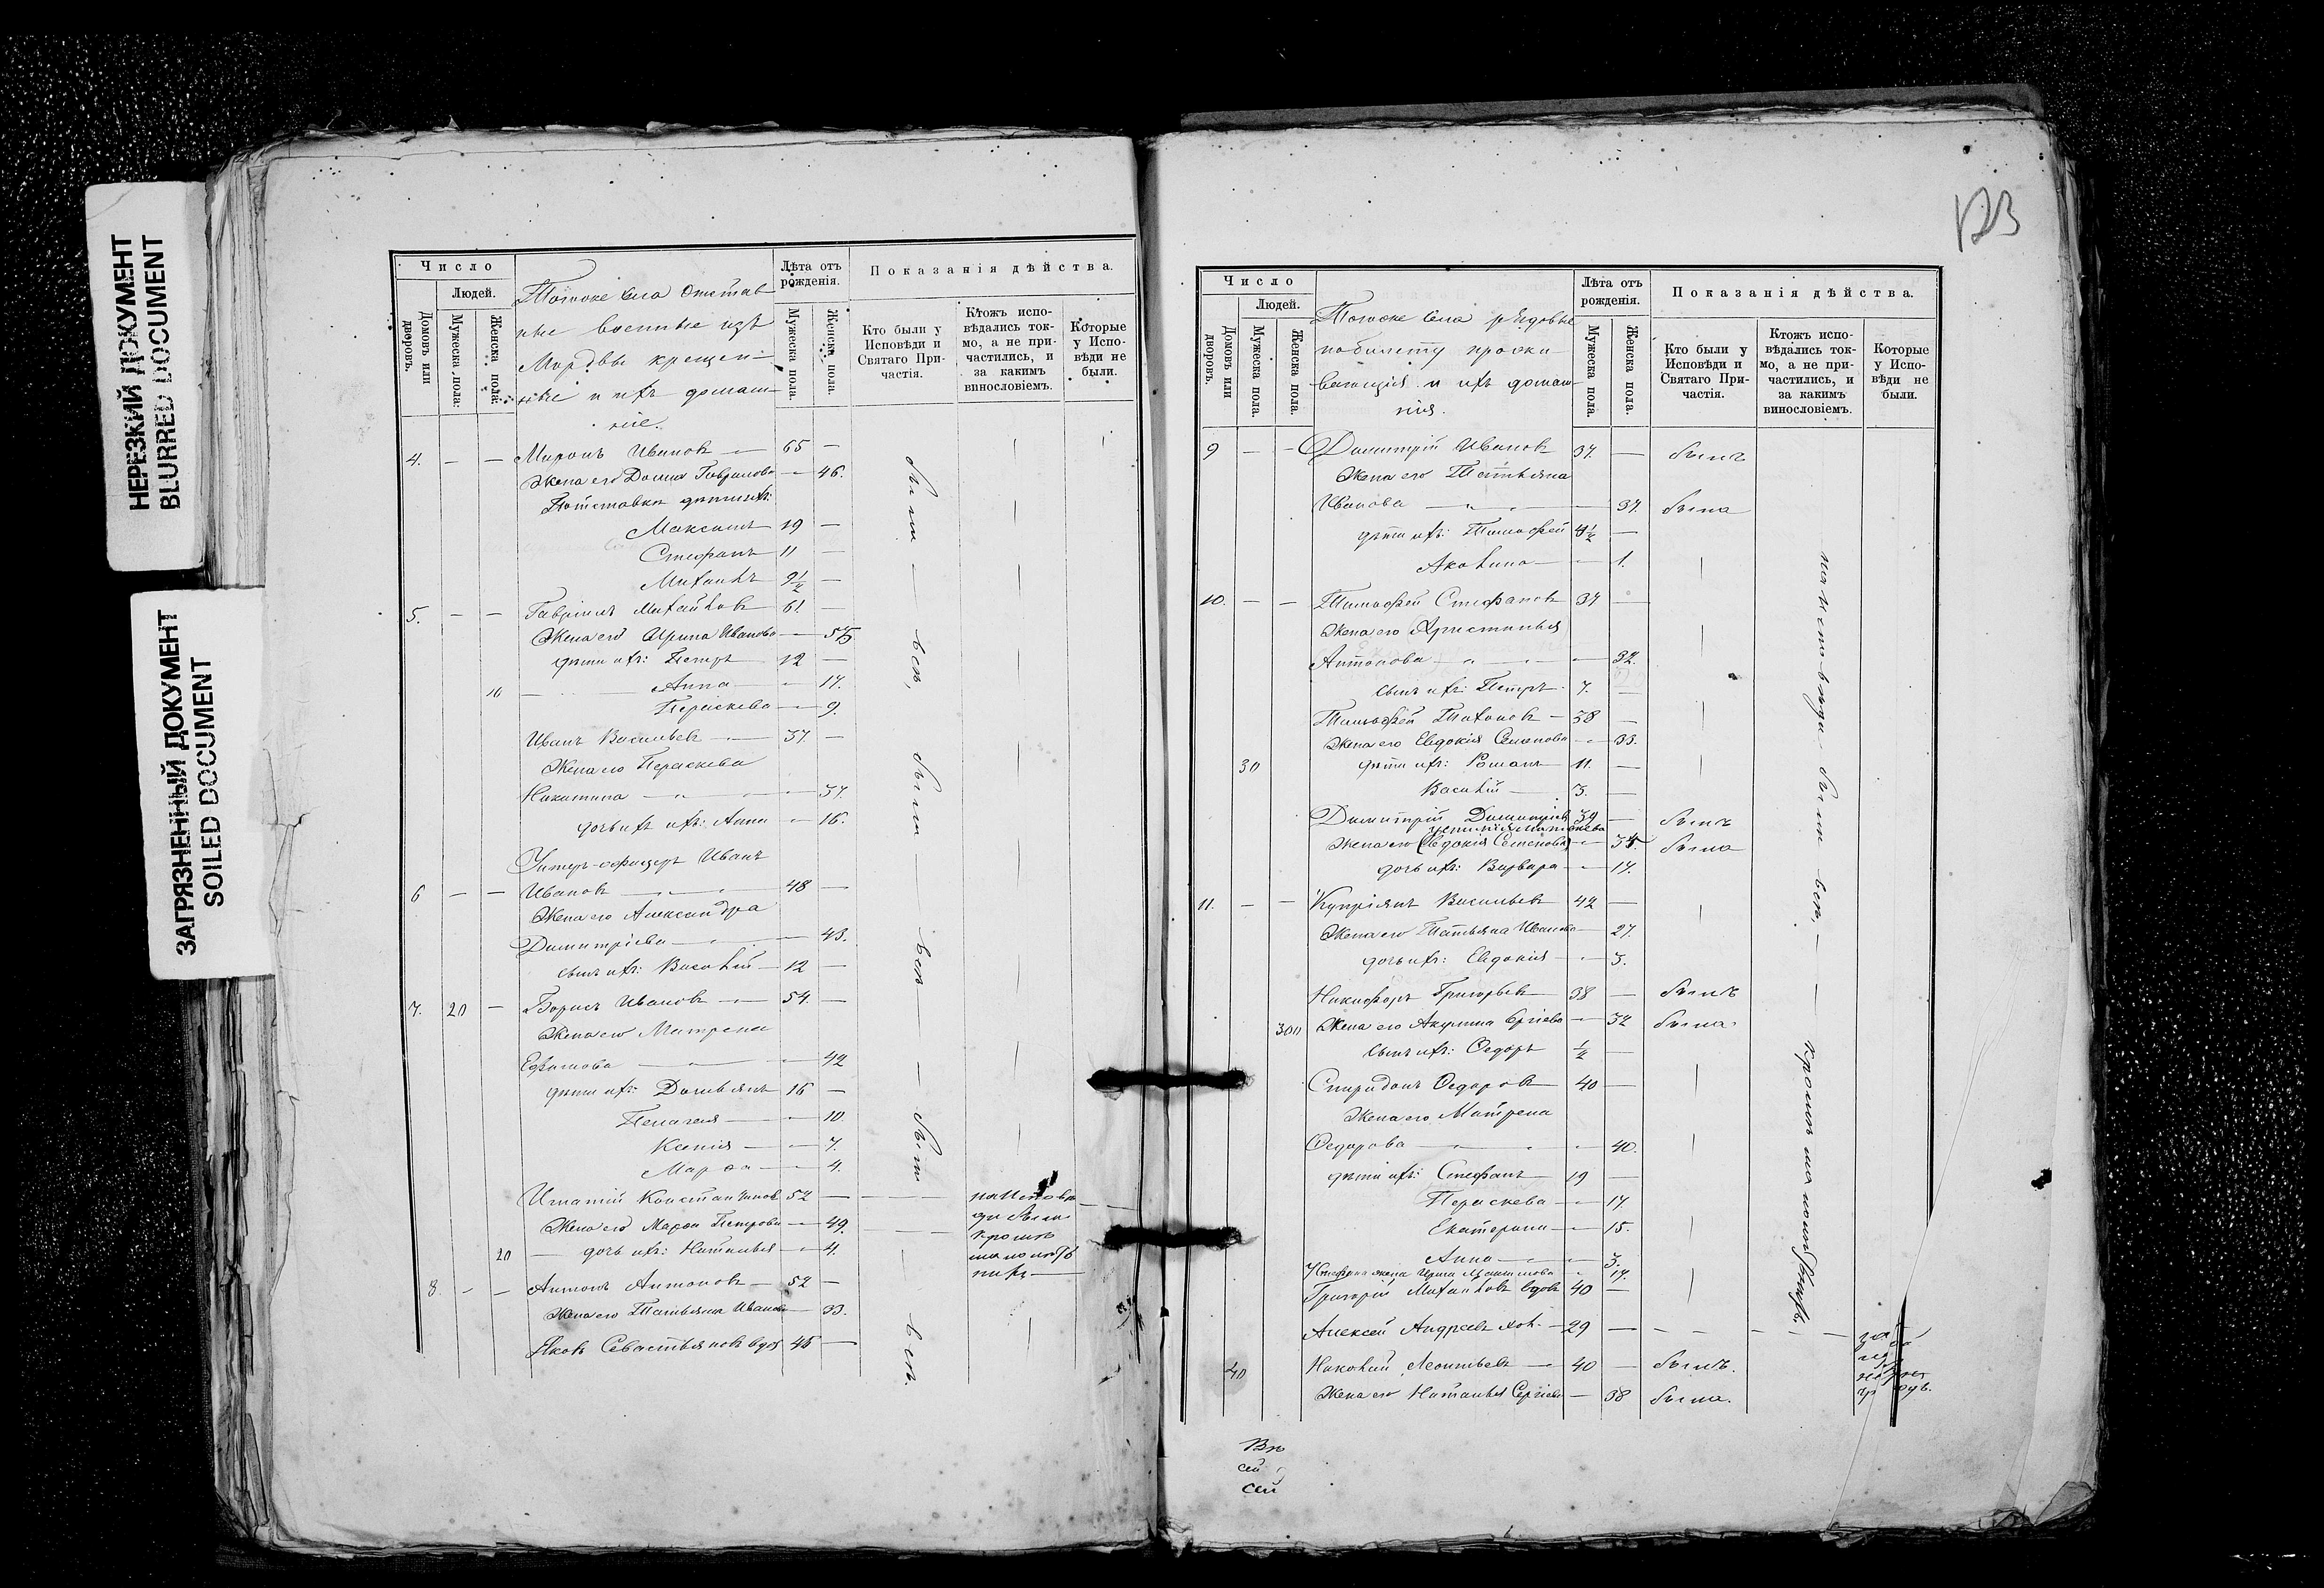 НЕРЕЗКИЙ ДОКУМЕНТ
BLURRED DOCUMENT
ЗАГРЯЗНЕННЫЙ ДОКУМЕНТ
SOILED DOCUMENT
Число
Людей.
Домовъ или дворовъ.
Мужеска пола.
Женска пола.
Тогоже села отстав
ные военные изъ
Мордвы крещен
ные и ихъ домаш
ніе.
Лѣта отъ рожденія.
Мужеска пола.
Женска пола.
Показанія дѣйства.
Кто были у Исповѣди и Святаго При-частія.
Ктожъ испо-вѣдались ток-мо, а не при-частились, и за какимъ винословіемъ.
Которые у Испо-вѣди не были.
4. — — Миронъ Ивановъ — 65 —
Жена его Домна Гаврилова — 46.
Максимъ 19 —
Стефанъ 11 —
Михаилъ 9½ —
5. — — Гавріилъ Михайловъ 61 —
Жена его Ирина Иванова — 55.
дѣти ихъ: Петръ 12 —
10 — Анна — 17.
Параскева — 9.
Иванъ Васильевъ — 37. —
Жена его Параскева
Никитина — 37.
дочь ихъ: Анна — 16.
Унтеръ-офицеръ Иванъ
6 — — Ивановъ — 48 —
Жена его Александра
Димитріева — 43.
сынъ ихъ: Василій — 12 —
7. 20 — Борисъ Ивановъ — 54. —
Жена его Матрена
Ефимова — 42
дѣти ихъ: Демьянъ 16 —
Пелагея — 10.
Ксенія — 7.
Марѳа — 4.
Игнатій Константиновъ 52 —
Жена его Марѳа Петрова — 49.
20 — дочь ихъ: Наталья — 4.
8 — — Антонъ Антоновъ — 52 —
Жена его Татьяна Иванова — 33.
Яковъ Севастьяновъ вдов 45 —
были — всѣ, были всѣ — были всѣ.
на исповѣ
ди были
кромѣ
малолѣт
123
Число
Людей.
Домовъ или дворовъ.
Мужеска пола.
Женска пола.
Тогоже села рядовые
по билету прожи
вающія и ихъ домаш
нія.
Лѣта отъ рожденія.
Мужеска пола.
Женска пола.
Показанія дѣйства.
Кто были у Исповѣди и Святаго При-частія.
Ктожъ испо-вѣдались ток-мо, а не при-частились, и за какимъ винословіемъ.
Которые у Испо-вѣди не были.
9 — — Димитрій Ивановъ 37. — былъ
Жена его Татьяна
Иванова — 37. была
дѣти ихъ: Тимофей —
Акулина — 1.
10. — — Тимофей Стефановъ 37 —
Жена его
Антонова — 32.
сынъ ихъ: Петръ 7. —
Тимофей Тихоновъ — 38 —
Жена его Евдокія Семенова — 33.
30 дѣти ихъ: Романъ — 11. —
Василій — 3. —
Димитрій Димитріевъ 39 — былъ
Жена его (Евдокія Семенова) — 35. была
дочь ихъ: Варвара — 17.
11. — — Купріянъ Васильевъ 42 —
Жена его Татьяна Иванова — 27.
дочь ихъ: Евдокія — 3.
Никифоръ Григорьевъ 38 — былъ
300 Жена его Акулина Сергіева — 32 была
сынъ ихъ: Ѳедоръ ½ —
Спиридонъ Ѳедоровъ 40 —
Жена его Матрена
Ѳедорова — 40.
дѣти ихъ: Стефанъ 19 —
Параскева — 17.
Екатерина — 15.
Анна — 3.
Стефана жена Ирина — 17.
Григорій Михайловъ вдовъ 40 —
Алексей Андреевъ хол. — 29 —
40 Николай Леонтьевъ — 40 — былъ.
Жена его Наталья Сергіева — 38 была.
на исповѣди были всѣ, — кромѣ малолѣтнихъ.
сей
сей